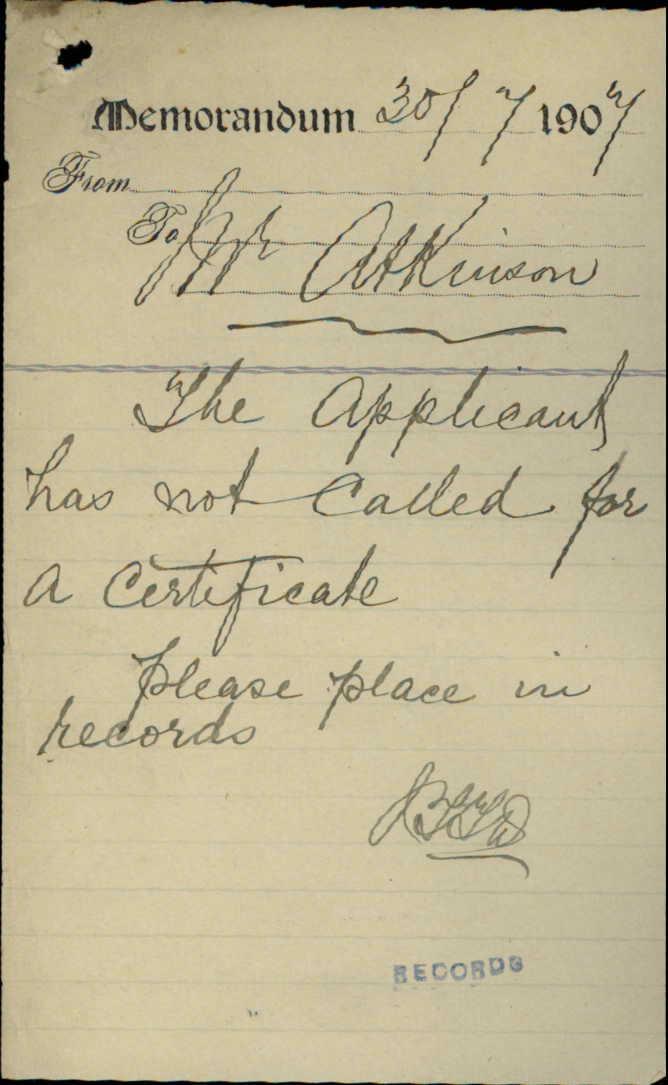 Memorandum 30/7/1907
From
To Mr Atkinson
The Applicant
has not called for
a Certificate
please place in
records
RECORDS